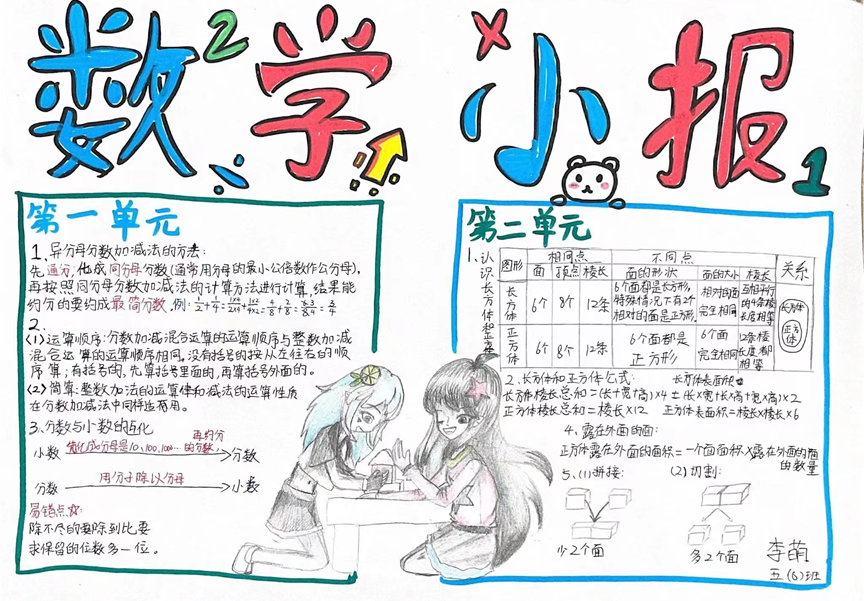 数学小报
2
1
第一单元
1、异分母分数加减法的方法:
先通分,化成同分母分数(通常用分母的最小公倍数作公分母),
再按照同分母分数加减法的计算方法进行计算,结果能
约分的要约成最简分数。例:
2.
(1)运算顺序:分数加减混合运算的运算顺序与整数加减
混合运算的运算顺序相同,没有括号的按从左往右的顺
序算;有括号的,先算括号里面的,再算括号外面的。
(2)简算:整数加法的运算律和减法的运算性质
在分数加减法中同样适用。
3.分数与小数的互化
再约分
小数 先化成分母是10、100、1000…的分数, 分数
用分子除以分母
分数 小数
易错点☆:
除不尽的要除到比要
求保留的位数多一位。
第二单元
1、认识长方体和正方体
图形 相同点 不同点 关系
面 顶点 棱长 面的形状 面的大小 棱长
长方体 6个 8个 12条 6个面都是长方形,特殊情况下有2个相对的面是正方形 相对的面完全相同 互相平行的4条棱长度相等
长方体
正方体
正方体 6个 8个 12条 6个面都是正方形 6个面完全相同 12条棱长度都相等
2.长方体和正方体公式: 长方体表面积=
长方体棱长总和=(长+宽+高)×4 (长×宽+长×高+宽×高)×2
正方体棱长总和=棱长×12 正方体表面积=棱长×棱长×6
4、露在外面的面:
正方体露在外面的面积=一个面面积×露在外面的面
的数量
5、(1)拼接: (2)切割:
少2个面 多2个面
李萌
五(6)班